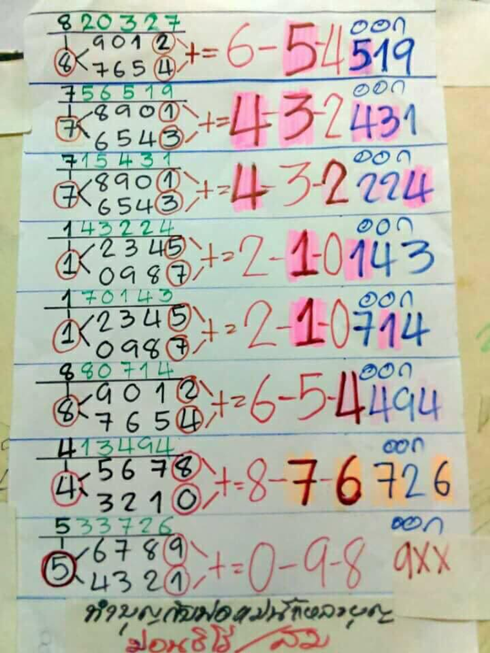 820327 ออก
8 9012 += 6-5-4 519
7654
756519 ออก
7 8901 += 4-3-2 431
6543
715431 ออก
7 8901 += 4-3-2 224
6543
143224 ออก
1 2345 += 2-1-0 143
0987
170143 ออก
1 2345 += 2-1-0 714
0987
880714 ออก
8 9012 += 6-5-4 494
7654
413494 ออก
4 5678 += 8-7-6 726
3210
533726 ออก
5 6789 += 0-9-8 9xx
4321